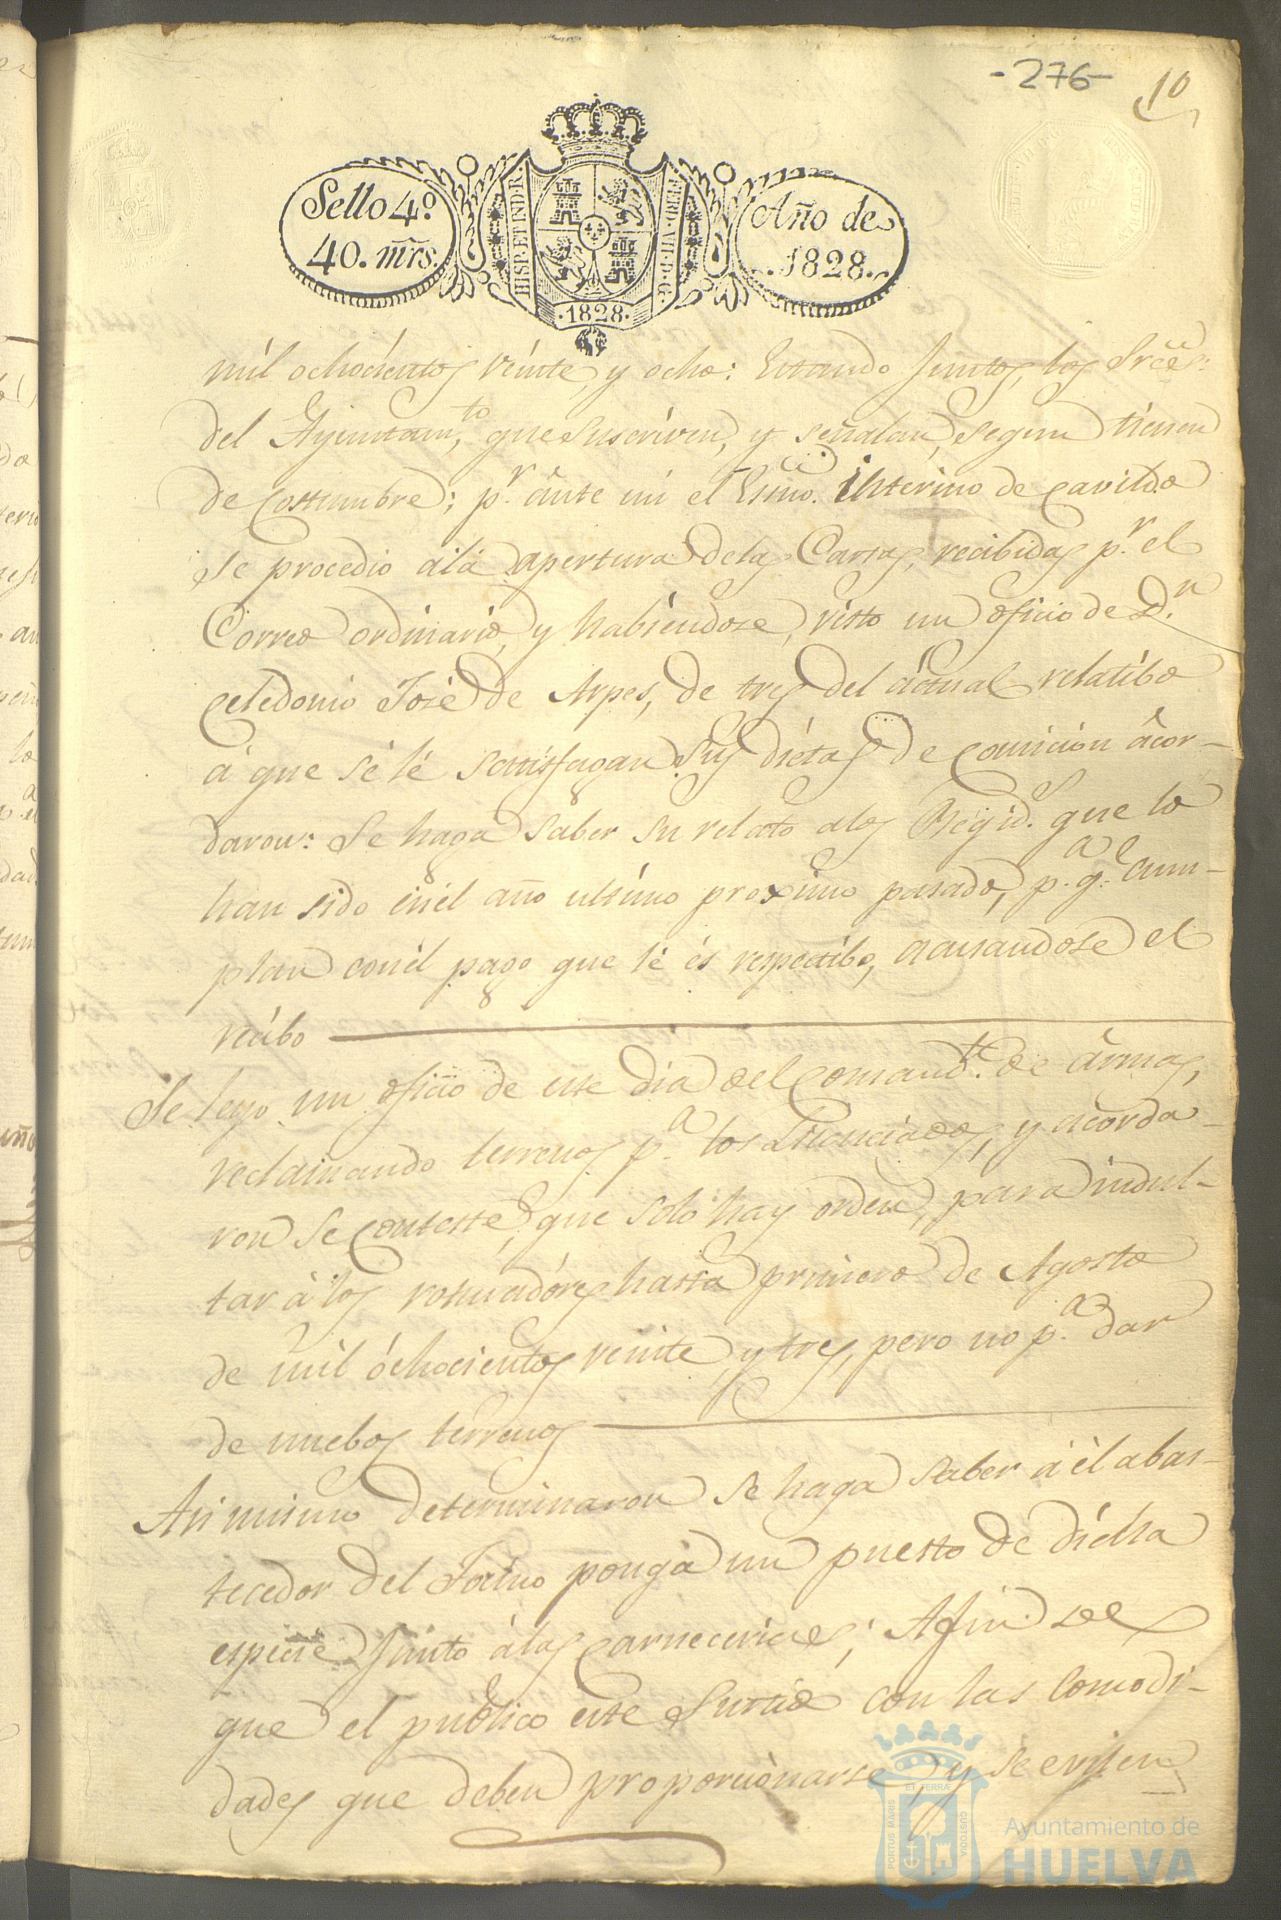 -276- 10
Sello 4º
40. mrs.
HISP. ET IND. R.
FERD. VII. D. G.
1828.
Año de
1828.
mil ochocientos veinte, y ocho: Estando Juntos, los Srês.
del Ayuntam.to, que suscriven, y señalan, segun tienen
de Costumbre; p.r ânte mi el Esnô. interino de cavildo
se procedio a la apertura delas Cartas, recibidas p.r el
Correo ordinario, y habiendose, visto un oficio de D.n
Celedonio José de Arpes, de tres del actual relatibo
á que se le sattisfagan Sus dietas de comicion âcor-
daron: Se haga saber su relato alos Regid.s que lo
han sido enél año ultimo proximo pasado, p.a q.e Cum-
plan conél pago que le és respectibo, acusandose el
recibo
Se leyo un oficio de este dia del Comand.te de ârmas,
reclamando terrenos p.a los Licenciados, y acorda-
ron se conteste, que solo hay orden, para indul-
tar à los roturadores hasta primero de Agosto
de mil óchocientos veinte, y tres, pero no p.a dar
de nuebos terrenos
Asi mismo determinaron se haga saber á él abas-
tecedor del Tosino ponga un puesto de dicha
especie Junto à las carnecerias; A fin de
que el publico este Surtido con las Comodi-
dades que deben proporcionarse, y se eviten
PORTUS MARIS
ET TERRÆ
CUSTODIA
Ayuntamiento de
HUELVA